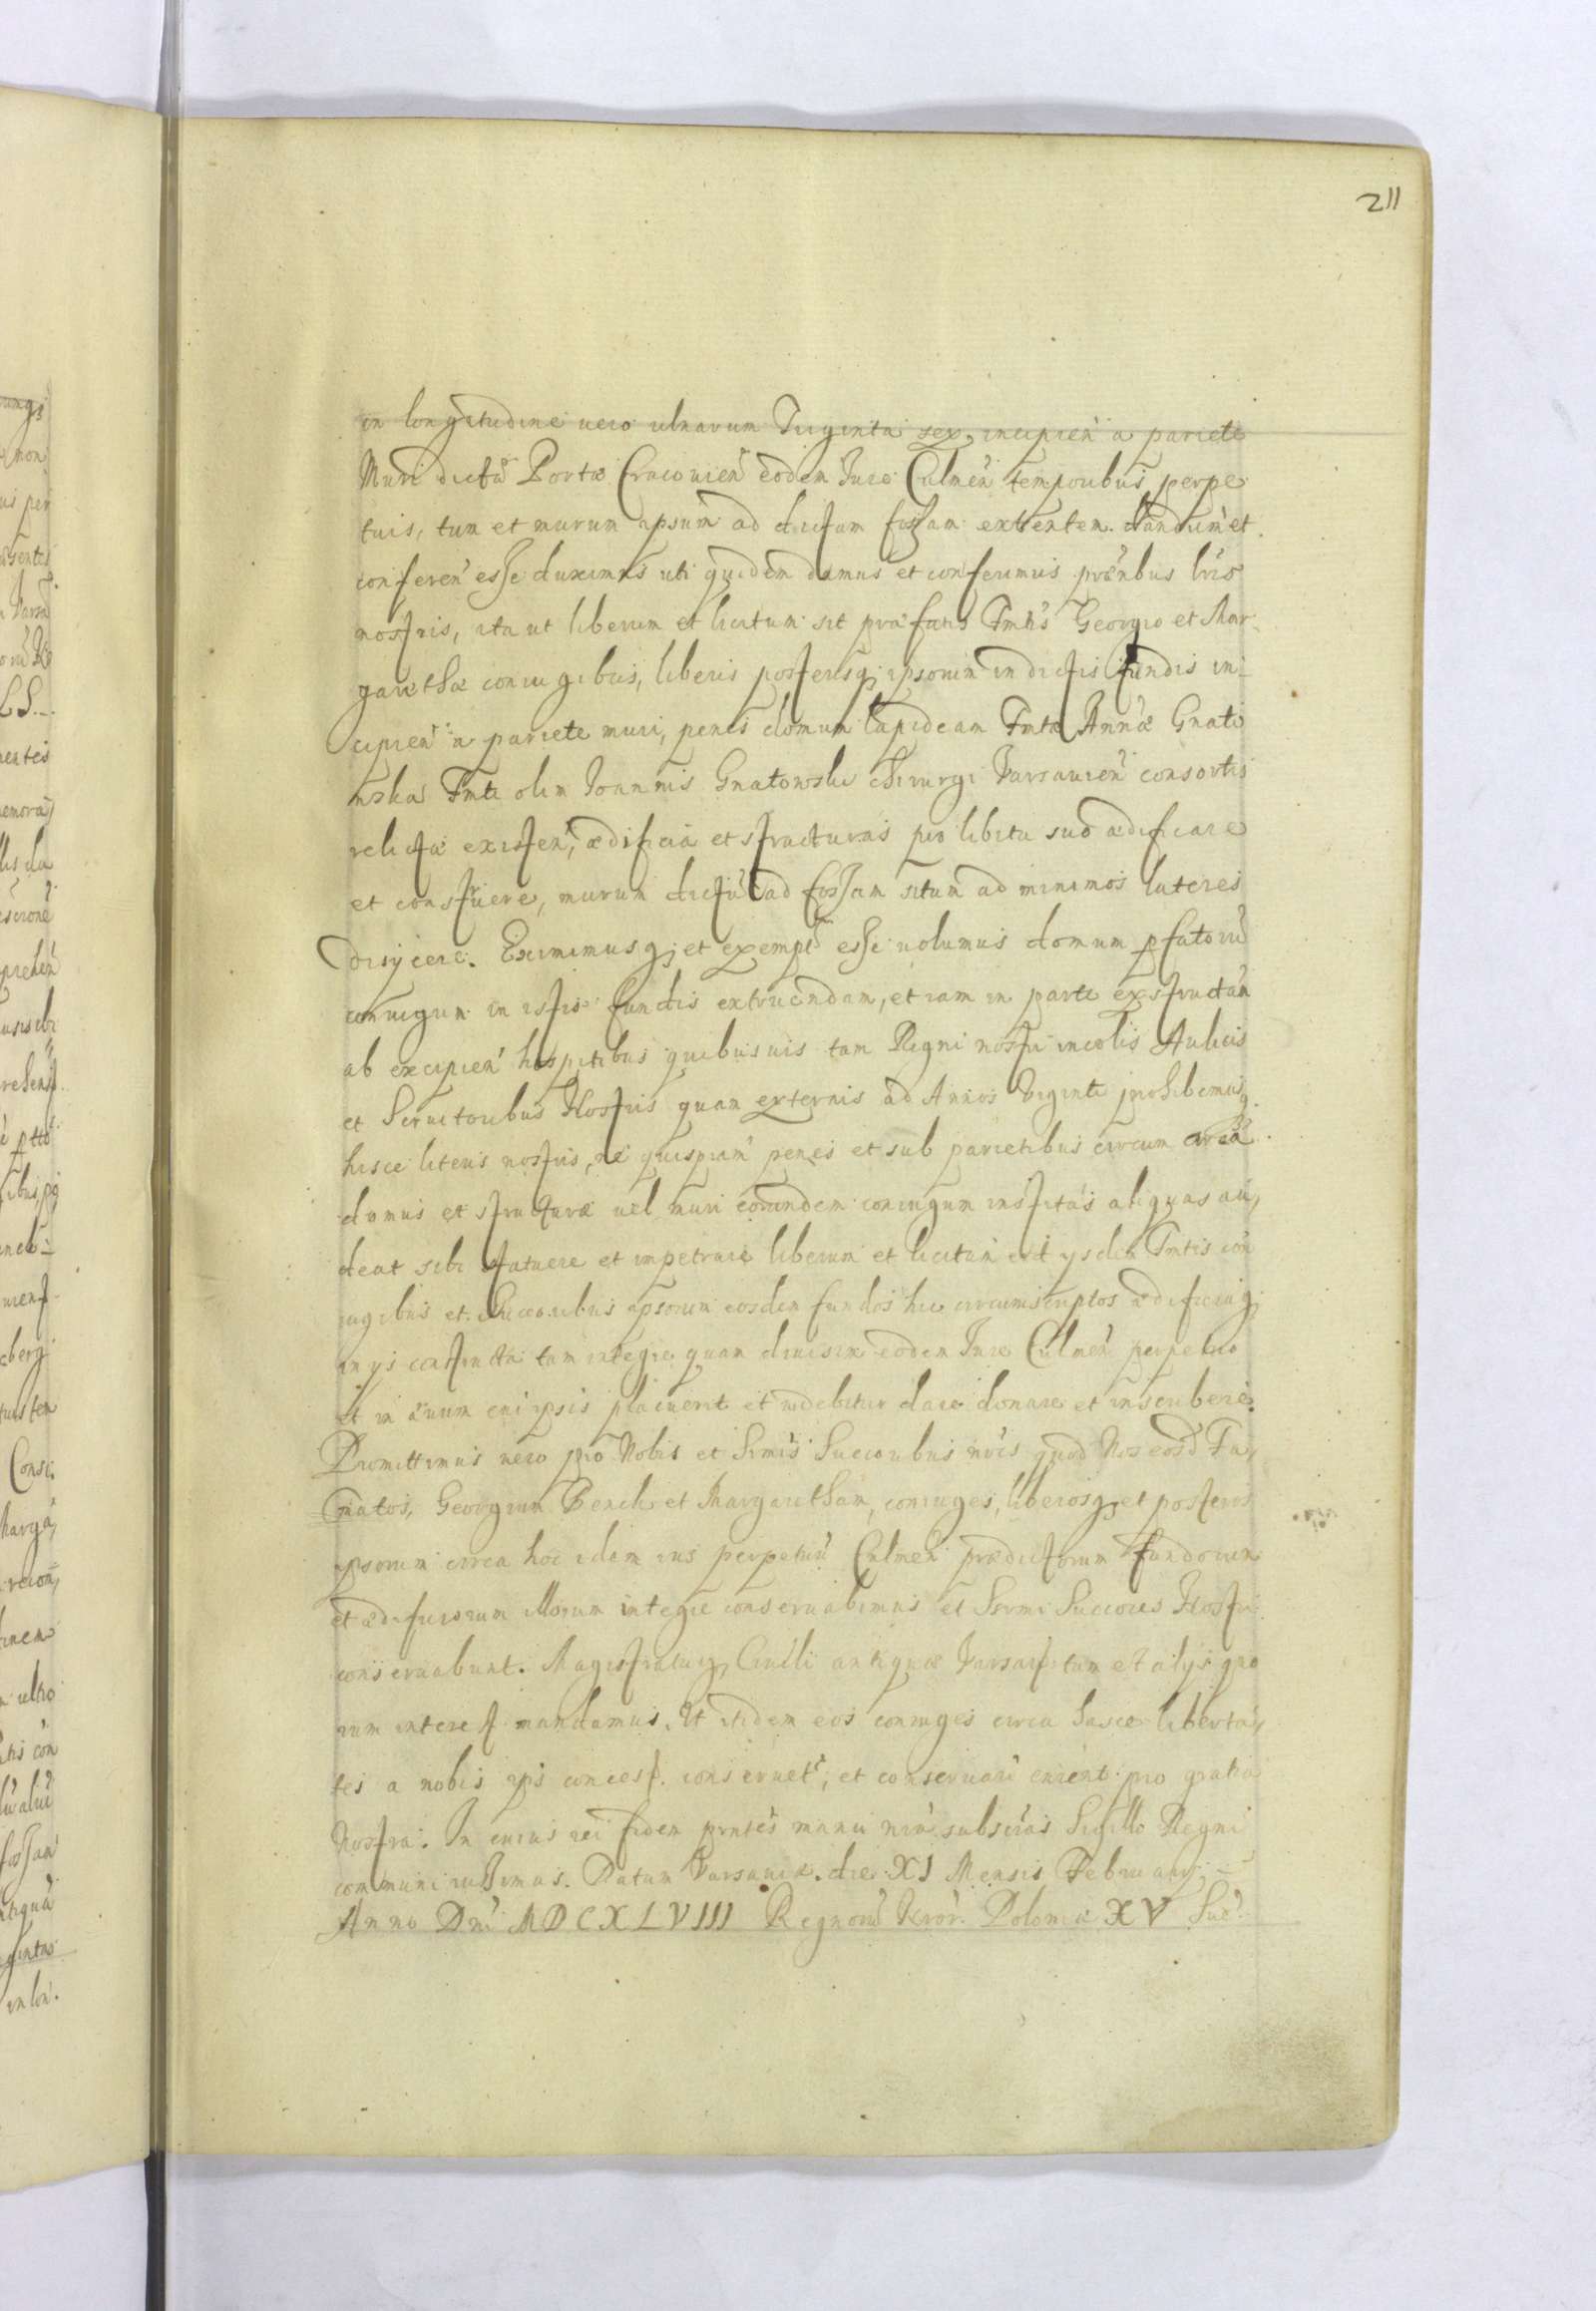 211
in longitudine uero ulnarum Triginta sex, incipien̄ a pariete
Muri dictæ Portæ Cracouien̄ eodem Iure Culmen̄ temporibus perpe
tuis, tum et murum ipsum ad dictam fossam extenten. dandum et
conferen̄ esse duximus uti quidem damus et conferimus præn̄bus lr̄is
nostris, ita ut liberum et licitum sit præfatis Fmtis Georgio et Mar
garethæ coniugibus, liberis posterisq; ipsorum in dictis fundis in
cipien̄ a pariete muri, penes domum lapideam Fmtæ Annæ Gnato
wska Fmti olim Ioannis Gnatowski chirurgi Varsauien̄ consortis
relictæ existen̄, ædificia et structuras pro libitu suo ædificare
et construere, murum dictū ad fossam situm ad minimos lateres
disijcere. Eximimusq; et exempt̄ esse uolumus domum pfatorū
coniugum in istis fundis extruendam, et iam in parte exstructam
ab excipien̄ hospitibus quibusuis tam Regni nostri incolis Aulicis
et Seruitoribus Nostris quam externis ad Annos Viginti prohibemusq
hisce literis nostris, ne quispiam penes et sub parietibus circum circa
domus et structuræ uel muri eorundem coniugum institas aliquas au,
deat sibi statuere et impetrare liberum et licitum erit ysdem Fmtis con
iugibus et Succoribus ipsorum eosdem fundos hic circumscriptos ædificiaq;
in ys constructa tam integre quam diuisim eodem Iure Culmen̄ perpetuo
et in æuum cui ipsis placuerit et uidebitur dare donare et inscribere.
Promittimus uero pro Nobis et Srmis Succoribus nr̄is quod Nos eosd̄ Fa,
matos, Georgium Bench et Margaretham, coniuges, liberosq; et posteros
ipsorum circa hoc idem ius perpetuū Culmen̄ prædictorum fundorum
et ædificiorum illorum integre conseruabimus et Srmi Succores Nostri
conseruabunt. Magistratuiq; Ciuili antiquæ Varsauiæ tum et alijs quo
rum interest mandamus. Ut itidem eos coniuges circa hasce liberta,
tes a nobis ip̄s concess. conseruet, et conseruari curent pro gratia
Nostra. In cuius rei fidem pn̄tes manu nr̄a subscr̄as Sigillo Regni
communiri iussimus. Datum Varsauiæ. die XI Mensis Februarij
Anno Dn̄i MDCXLVIII Regnorū Nr̄or. Poloniæ XV Sue.